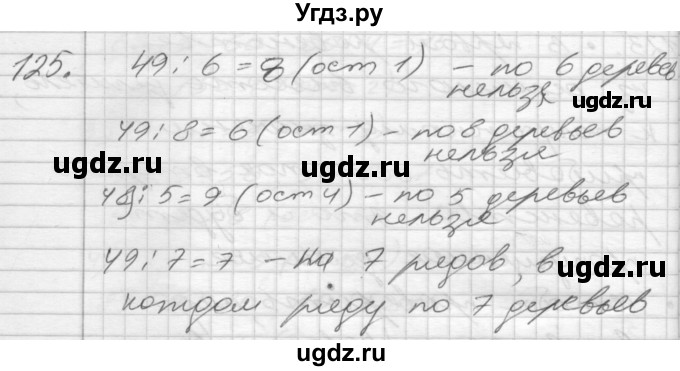 Угдз.ру
125. 49 : 6 = 8 (ост 1) – по 6 деревьев
нельзя
ugdz.ru
ugdz.ru
49 : 8 = 6 (ост 1) – по 8 деревьев
нельзя
ugdz.ru
ugdz.ru
49 : 5 = 9 (ост 4) – по 5 деревьев
нельзя
49 : 7 = 7 – на 7 рядов, в
ugdz.ru
ugdz.ru
каждом ряду по 7 деревьев
ugdz.ru